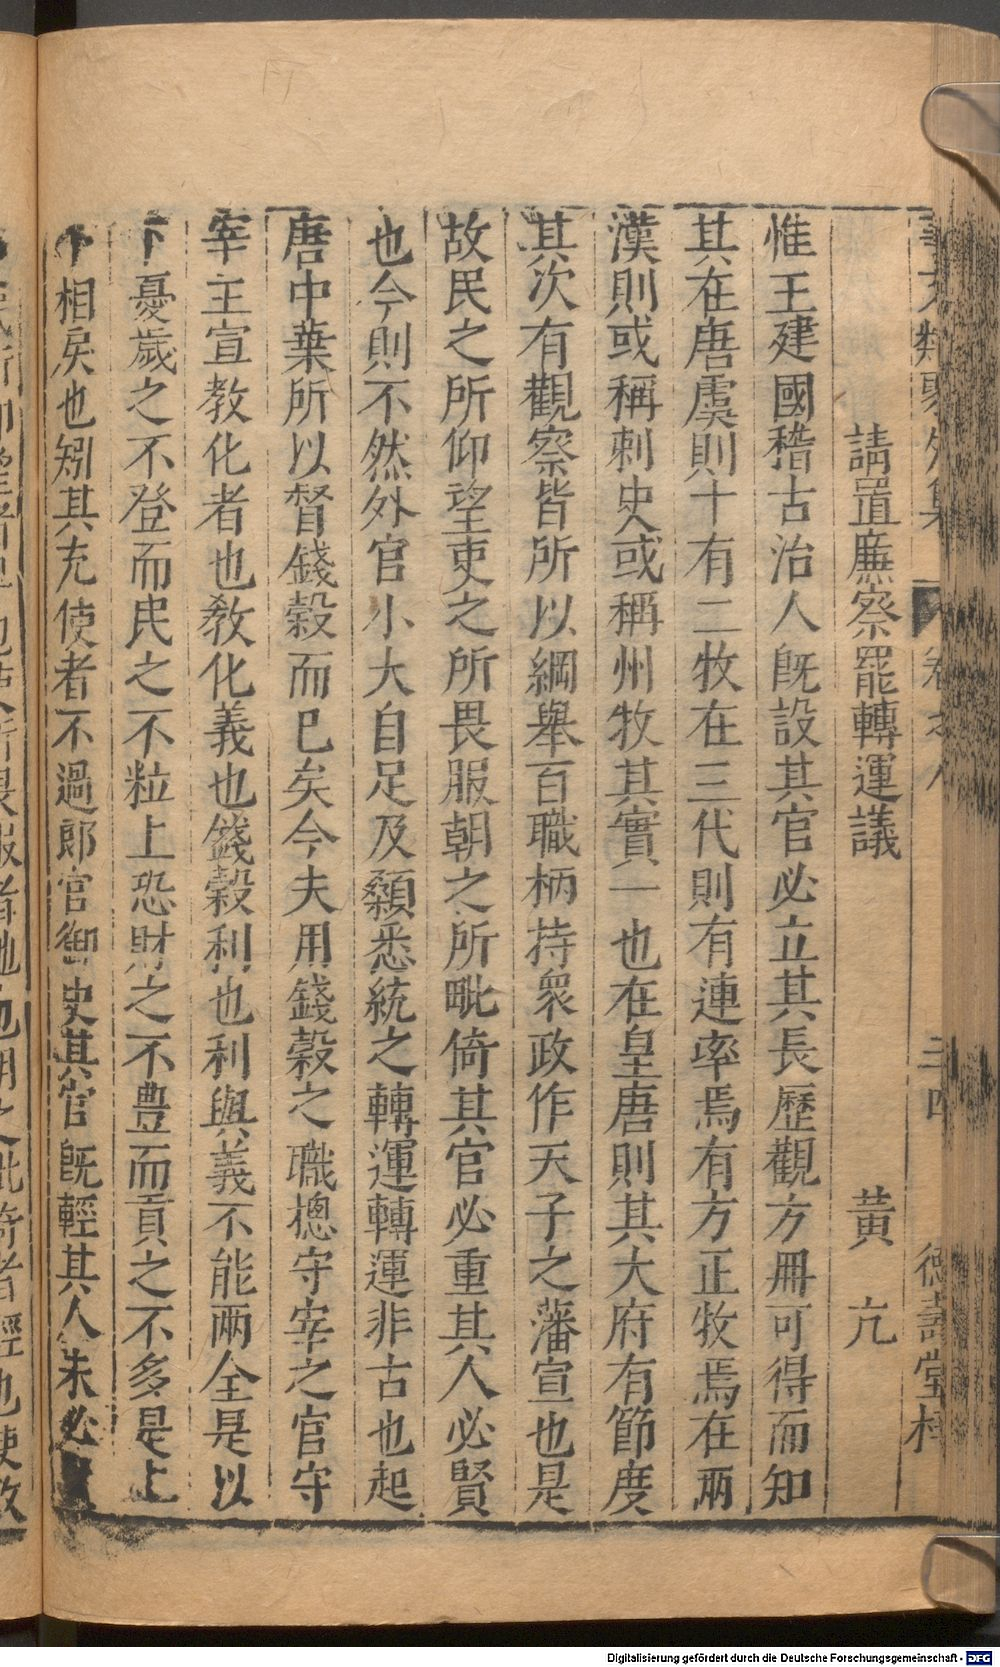 請置廉察罷轉運議 黃 亢
惟王建國稽古治人旣設其官必立其長歷觀方冊可得而知
其在唐虞則十有二牧在三代則有連率焉有方正牧焉在兩
漢則或稱刺史或稱州牧其實一也在皇唐則其大府有節度
其次有觀察皆所以綱舉百職柄持衆政作天子之藩宣也是
故民之所仰望吏之所畏服朝之所毗倚其官必重其人必賢
也今則不然外官小大自足及纇悉統之轉運轉運非古也起
唐中葉所以督錢穀而已矣今夫用錢穀之職摠守宰之官守
宰主宣教化者也敎化義也錢穀利也利與義不能兩全是以
下憂歲之不登而民之不粒上恐財之不豊而貢之不多是上
下相戾也矧其充使者不過郎官御史其官旣輕其人未必
德壽堂梓
Digitalisierung gefördert durch die Deutsche Forschungsgemeinschaft - DFG